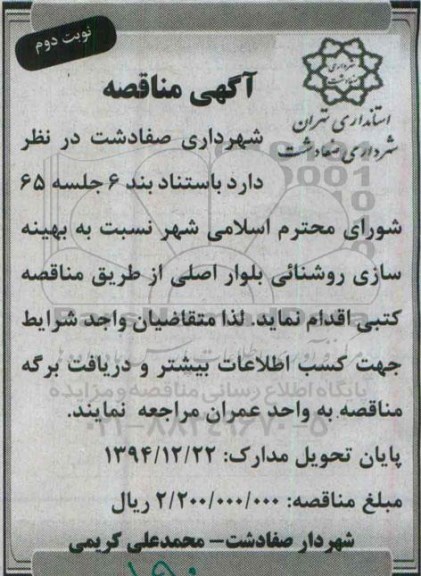 نوبت دوم
شهرداری
صفادشت
استانداری تهران
شهرداری صفادشت
آگهی مناقصه
شهرداری صفادشت در نظر
دارد باستناد بند ۶ جلسه ۶۵
شورای محترم اسلامی شهر نسبت به بهینه
سازی روشنائی بلوار اصلی از طریق مناقصه
کتبی اقدام نماید. لذا متقاضیان واجد شرایط
جهت کسب اطلاعات بیشتر و دریافت برگه
مناقصه به واحد عمران مراجعه نمایند.
پایان تحویل مدارک: ۱۳۹۴/۱۲/۲۲
مبلغ مناقصه: ۲/۲۰۰/۰۰۰/۰۰۰ ریال
شهردار صفادشت– محمدعلی کریمی
پایگاه اطلاع رسانی مناقصه و مزایده
۰۲۱–۸۸۳۴۹۶۷۰–۵